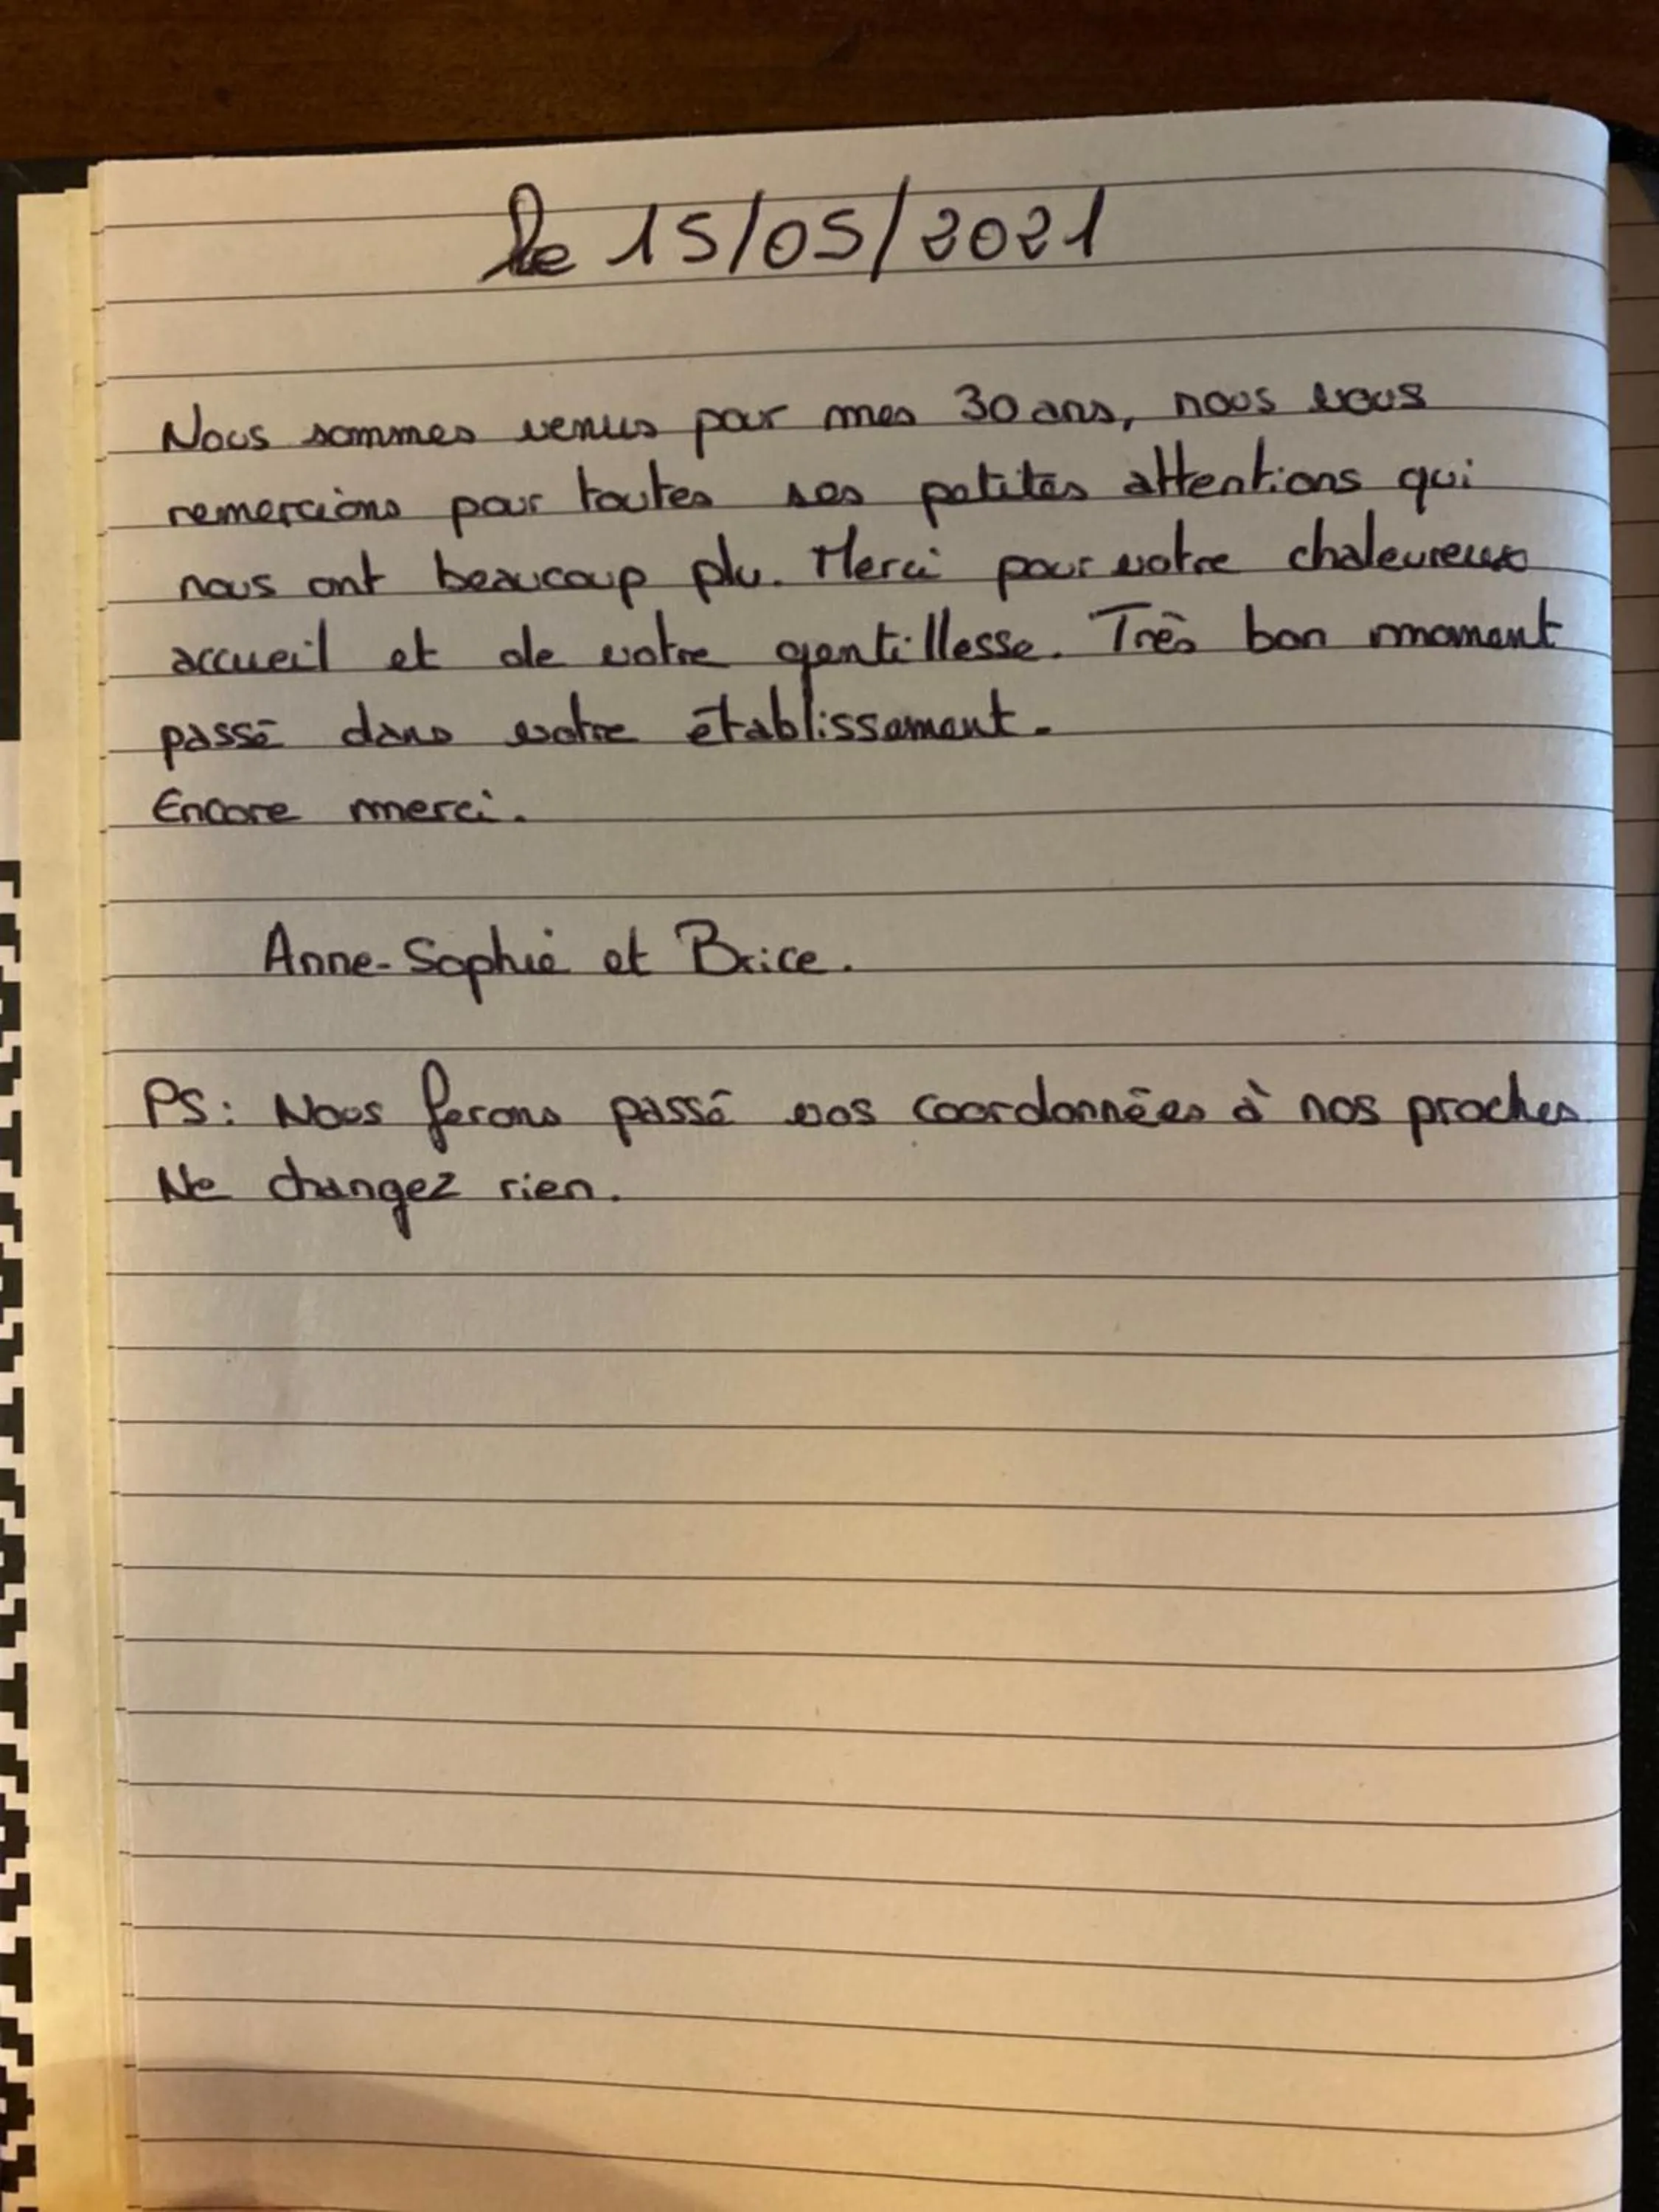 le 15/05/2021
Nous sommes venus pour mes 30 ans, nous vous
remercions pour toutes ses petites attentions qui
nous ont beaucoup plu. Merci pour votre chaleureux
accueil et de votre gentillesse. Très bon moment
passé dans votre établissement.
Encore merci.
Anne-Sophie et Brice.
PS: Nous ferons passé vos coordonnées à nos proches
Ne changez rien.